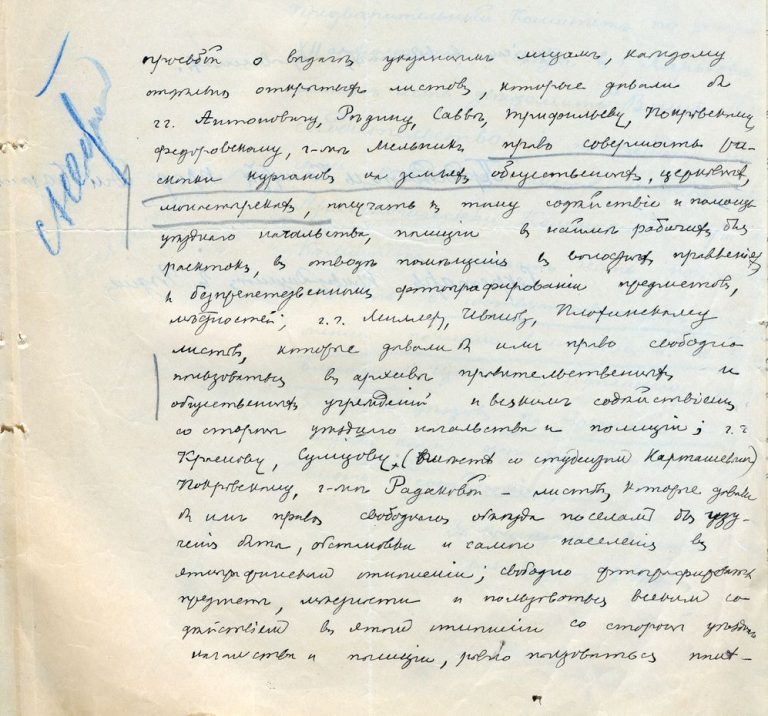 просьбой о выдачѣ указаннымъ лицамъ, каждому
отдѣльно открытыхъ листовъ, которые давали бъ
г.г. Антоновичу, Рѣдину, Саввѣ, Трифильеву, Покровскому,
Федоровскому, г-жѣ Мельникъ право совершать рас-
копки кургановъ на земляхъ общественныхъ, церковныхъ,
монастырскихъ, получать къ тому содѣйствіе и помощь
уѣзднаго начальства, полиціи въ наймѣ рабочихъ для
раскопокъ, въ отводѣ помѣщенія въ волостныхъ правленіяхъ
и безпрепятственномъ фотографированіи предметовъ,
мѣстностей; г.г. Миллеру, Иванову, Плохинскому
листовъ, которые давали бъ имъ право свободно
пользоваться въ архивахъ правительственныхъ и
общественныхъ учрежденій и всякимъ содѣйствіемъ
со стороны уѣзднаго начальства и полиціи; г.г.
Краснову, Сумцову, (вмѣстѣ со студентомъ Карташевымъ)
Покровскому, г-жѣ Радаковой – листовъ, которые давали
бъ имъ право свободнаго объѣзда поселеній для изу-
ченія быта, обстановки и самого населенія въ
этнографическомъ отношеніи; свободно фотографировать
предметы, мѣстности и пользоваться всякимъ со-
дѣйствіемъ въ этомъ отношеніи со стороны уѣзднаго
начальства и полиціи, равно пользоваться